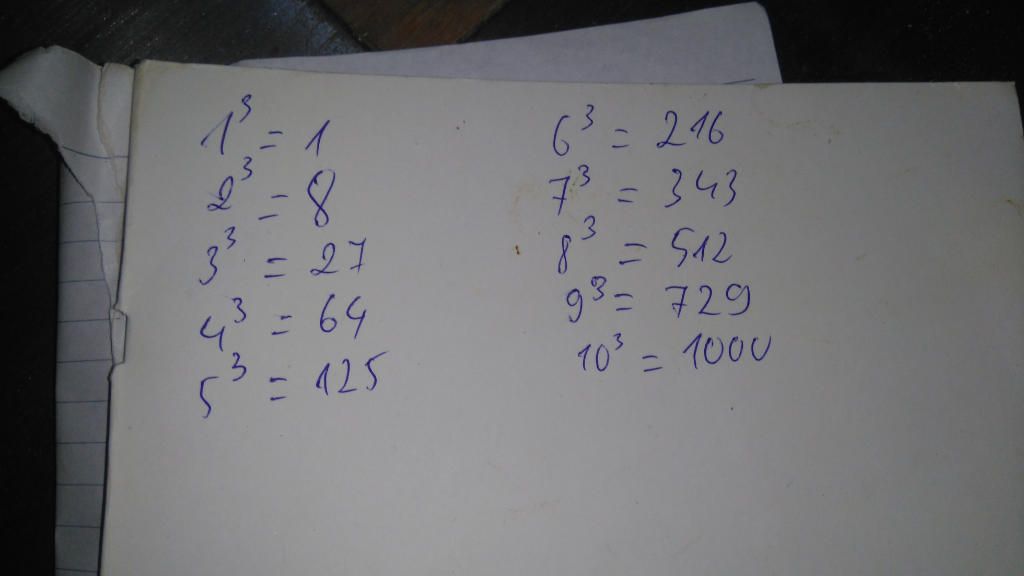 1³ = 1
2³ = 8
3³ = 27
4³ = 64
5³ = 125
6³ = 216
7³ = 343
8³ = 512
9³ = 729
10³ = 1000